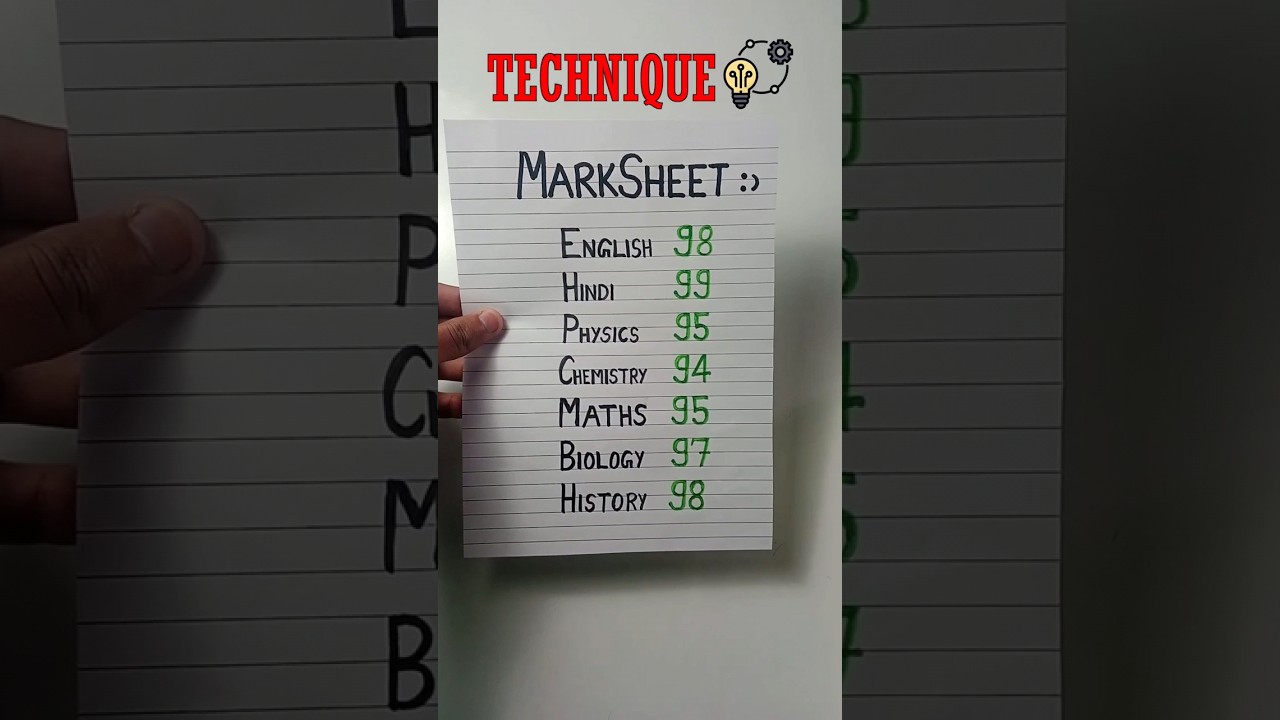 TECHNIQUE
MARKSHEET :)
ENGLISH 98
HINDI 99
PHYSICS 95
CHEMISTRY 94
MATHS 95
BIOLOGY 97
HISTORY 98